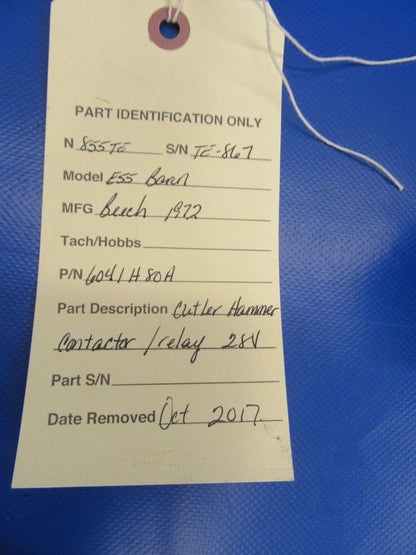 PART IDENTIFICATION ONLY
N 855TE S/N TE-867
Model E55 Baron
MFG Beech 1972
Tach/Hobbs
P/N 6041H80A
Part Description Cutler Hammer
Contactor/relay 28V
Part S/N
Date Removed Oct 2017